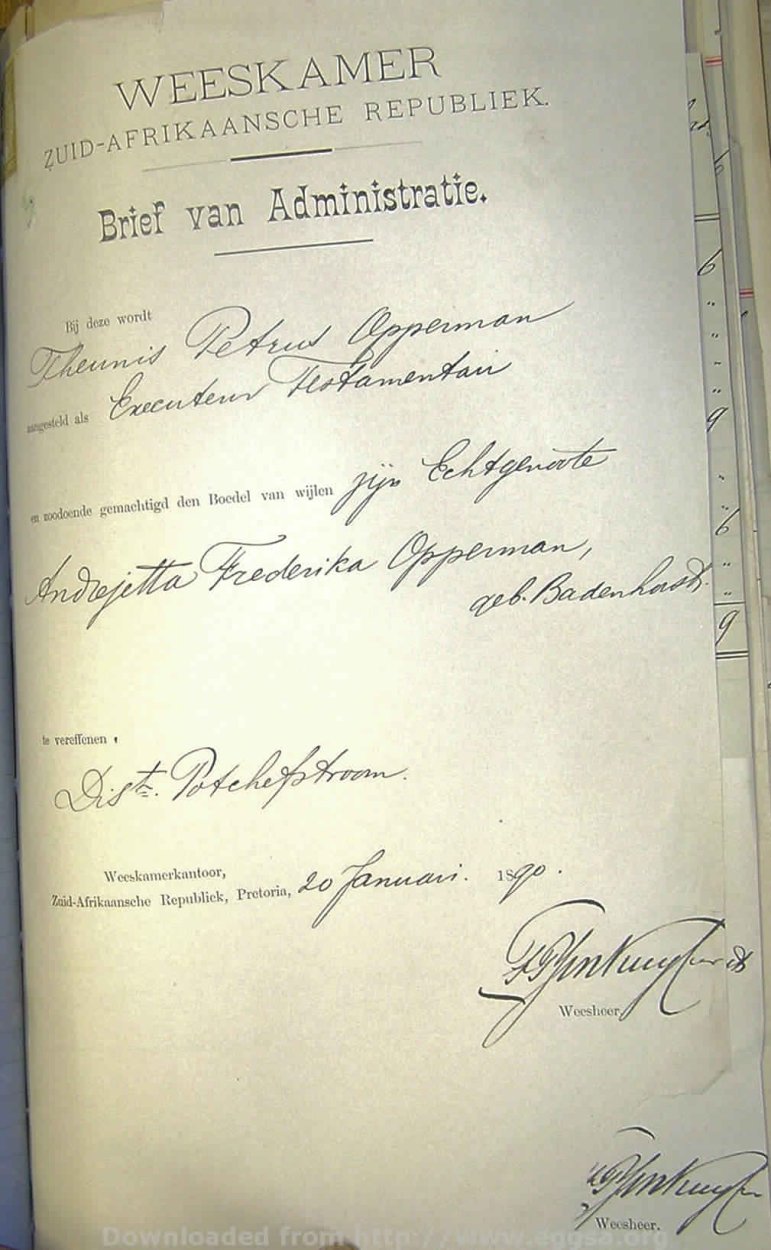 WEESKAMER
ZUID-AFRIKAANSCHE REPUBLIEK.
Brief van Administratie.
Bij deze wordt
Theunis Petrus Opperman
aangesteld als Executeur Testamentair
en zoodoende gemachtigd den Boedel van wijlen zijn Echtgenoote
Andrejetta Frederika Opperman,
geb. Badenhorst.
te vereffenen,
Distr. Potchefstroom.
Weeskamerkantoor,
Zuid-Afrikaansche Republiek, Pretoria, 20 Januari. 1890.
Weesheer,
Weesheer.
6
9
6
9
Downloaded from http://www.eggsa.org